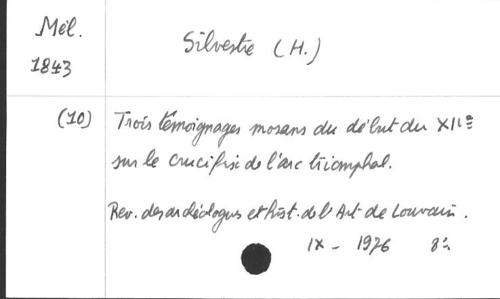 Mél.
1843
Silvestre (H.)
(10) Trois témoignages mosans du début du XIIe
sur le crucifix de l'arc triomphal.
Rev. des archéologues et hist. de l'Art de Louvain.
IX - 1976 8°